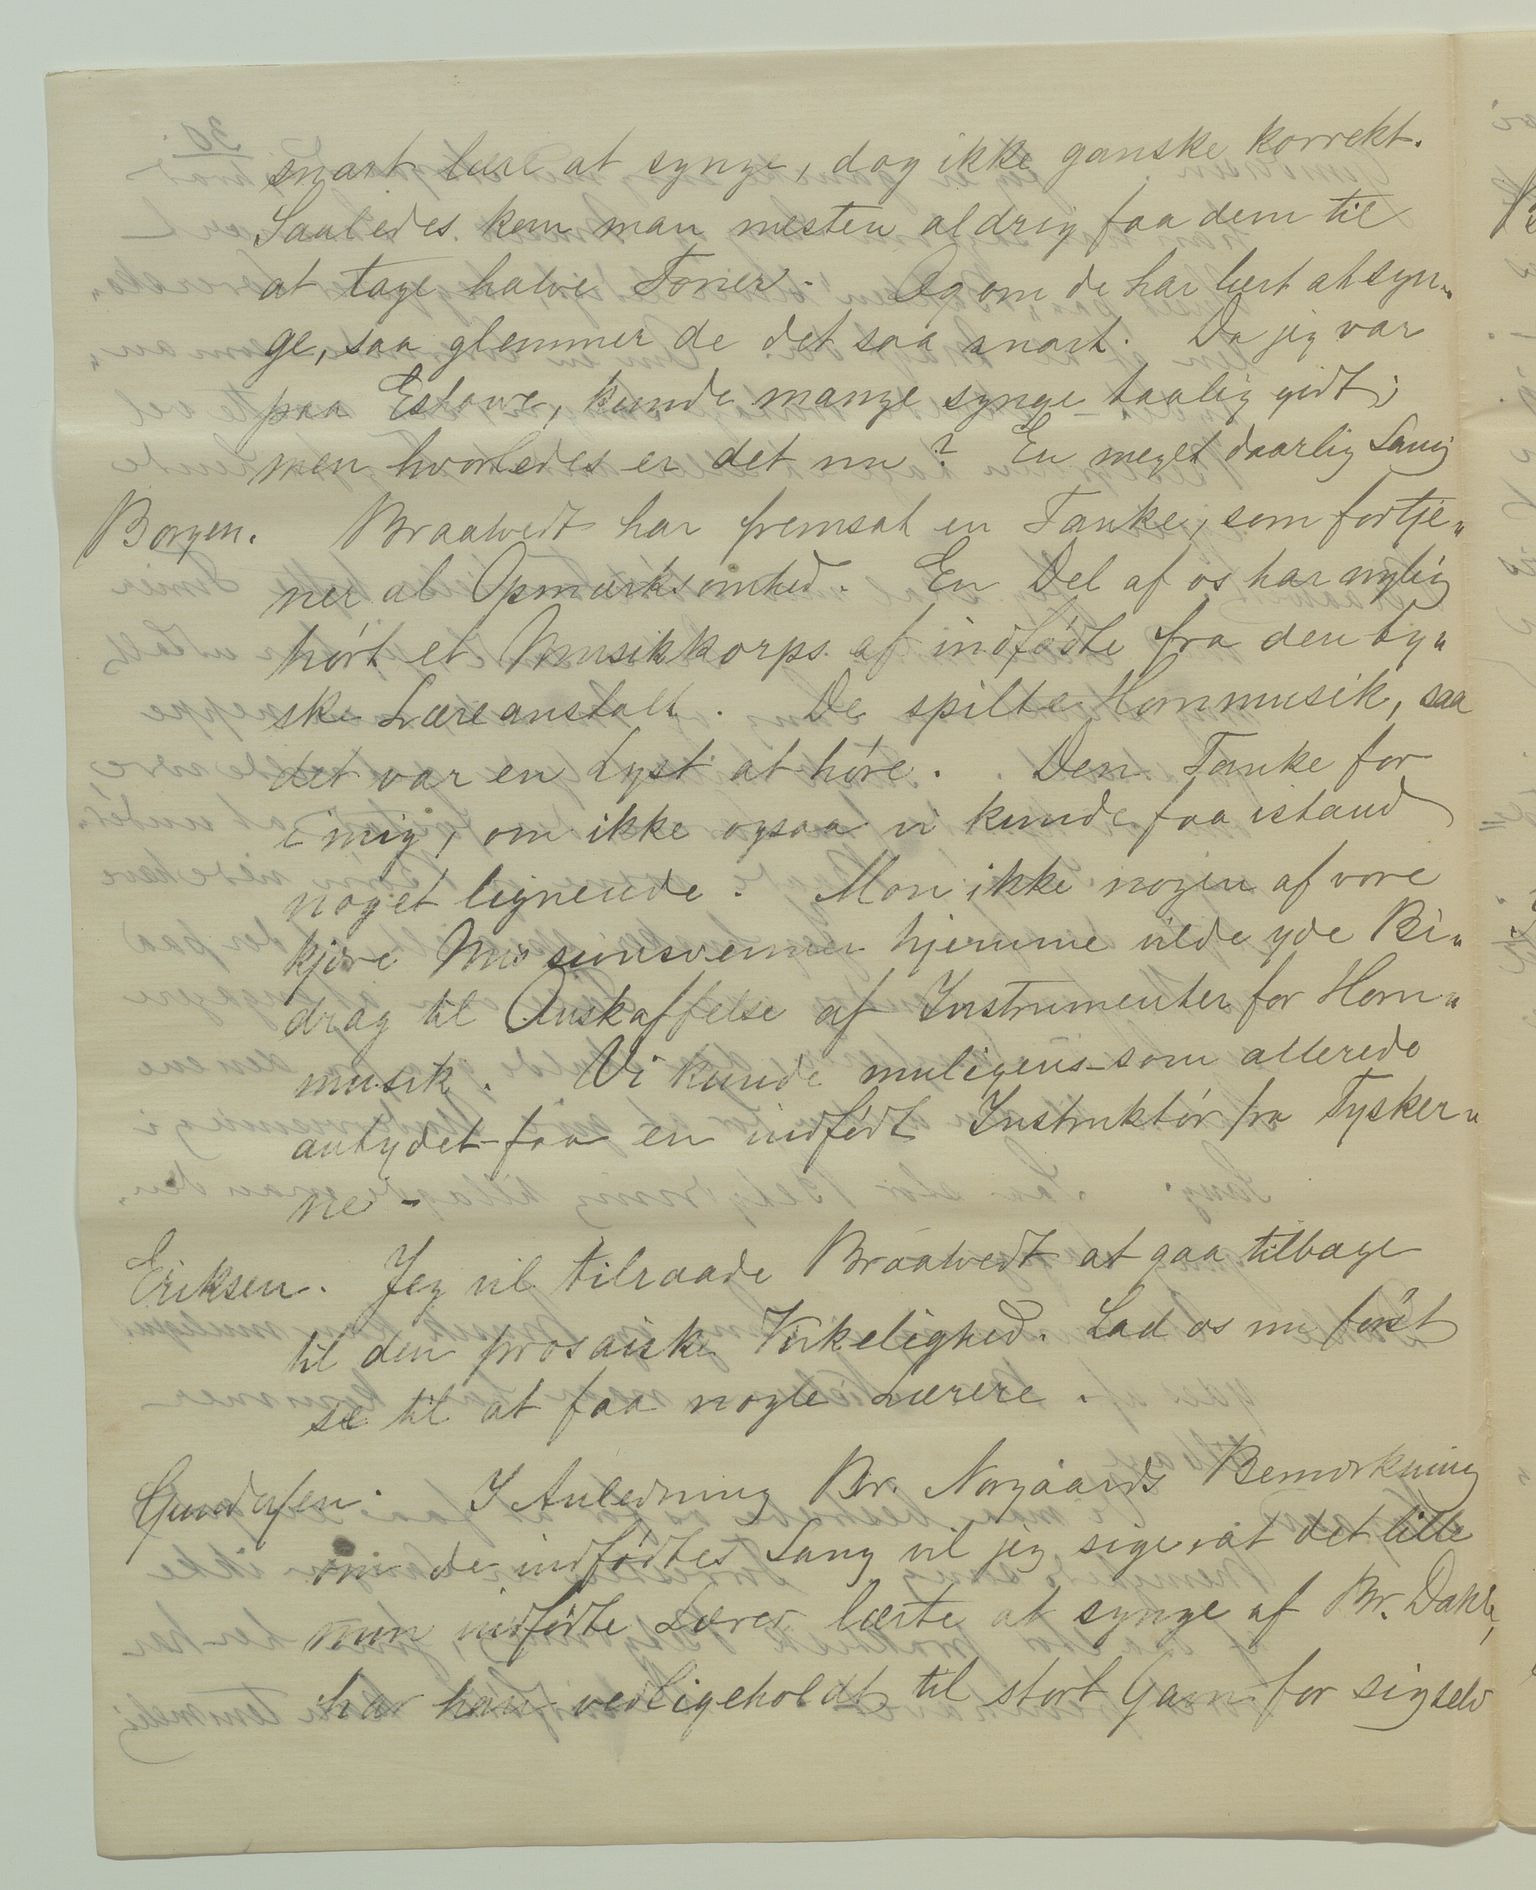 snart lære at synge, dog ikke ganske korrekt.
Saaledes kan man nesten aldrig faa dem til
at tage halve Toner. Og om de har lært at syn„
ge, saa glemmer de det saa snart. Da jeg var
paa Eslowe, kunde mange synge taalig godt;
men hvorledes er det nu? En meget daarlig Sang
Borgen. Braatvedt har fremsat en Tanke, som fortje„
ner al Opmærksomhed. En Del af os har nylig
hørt et Musikkorps af indfødte fra den ty„
ske Læreanstalt. De spilte Hornmusik, saa
det var en Lyst at høre. Den Tanke for
i mig, om ikke ogsaa vi kunde faa istand
noget lignende. Mon ikke nogen af vore
kjære Missionsvenner hjemme vilde yde Bi„
drag til Anskaffelse af Instrumenter for Horn„
musik. Vi kunde muligens–som allerede
antydet–faa en indfødt Instruktør fra Tysker„
ne –
Eriksen. Jeg vil tilraade Braatvedt at gaa tilbage
til den prosaiske Virkelighed. Lad os nu først
se til at faa nogle Lærere.
Gundersen. I Anledning Br. Norgaards Bemærkning
om de indfødtes Sang vil jeg sige, at det lille
min indfødte Lærer lærte at synge af Br. Dahle,
har han vedligeholdt til stort Gavn for sig selv